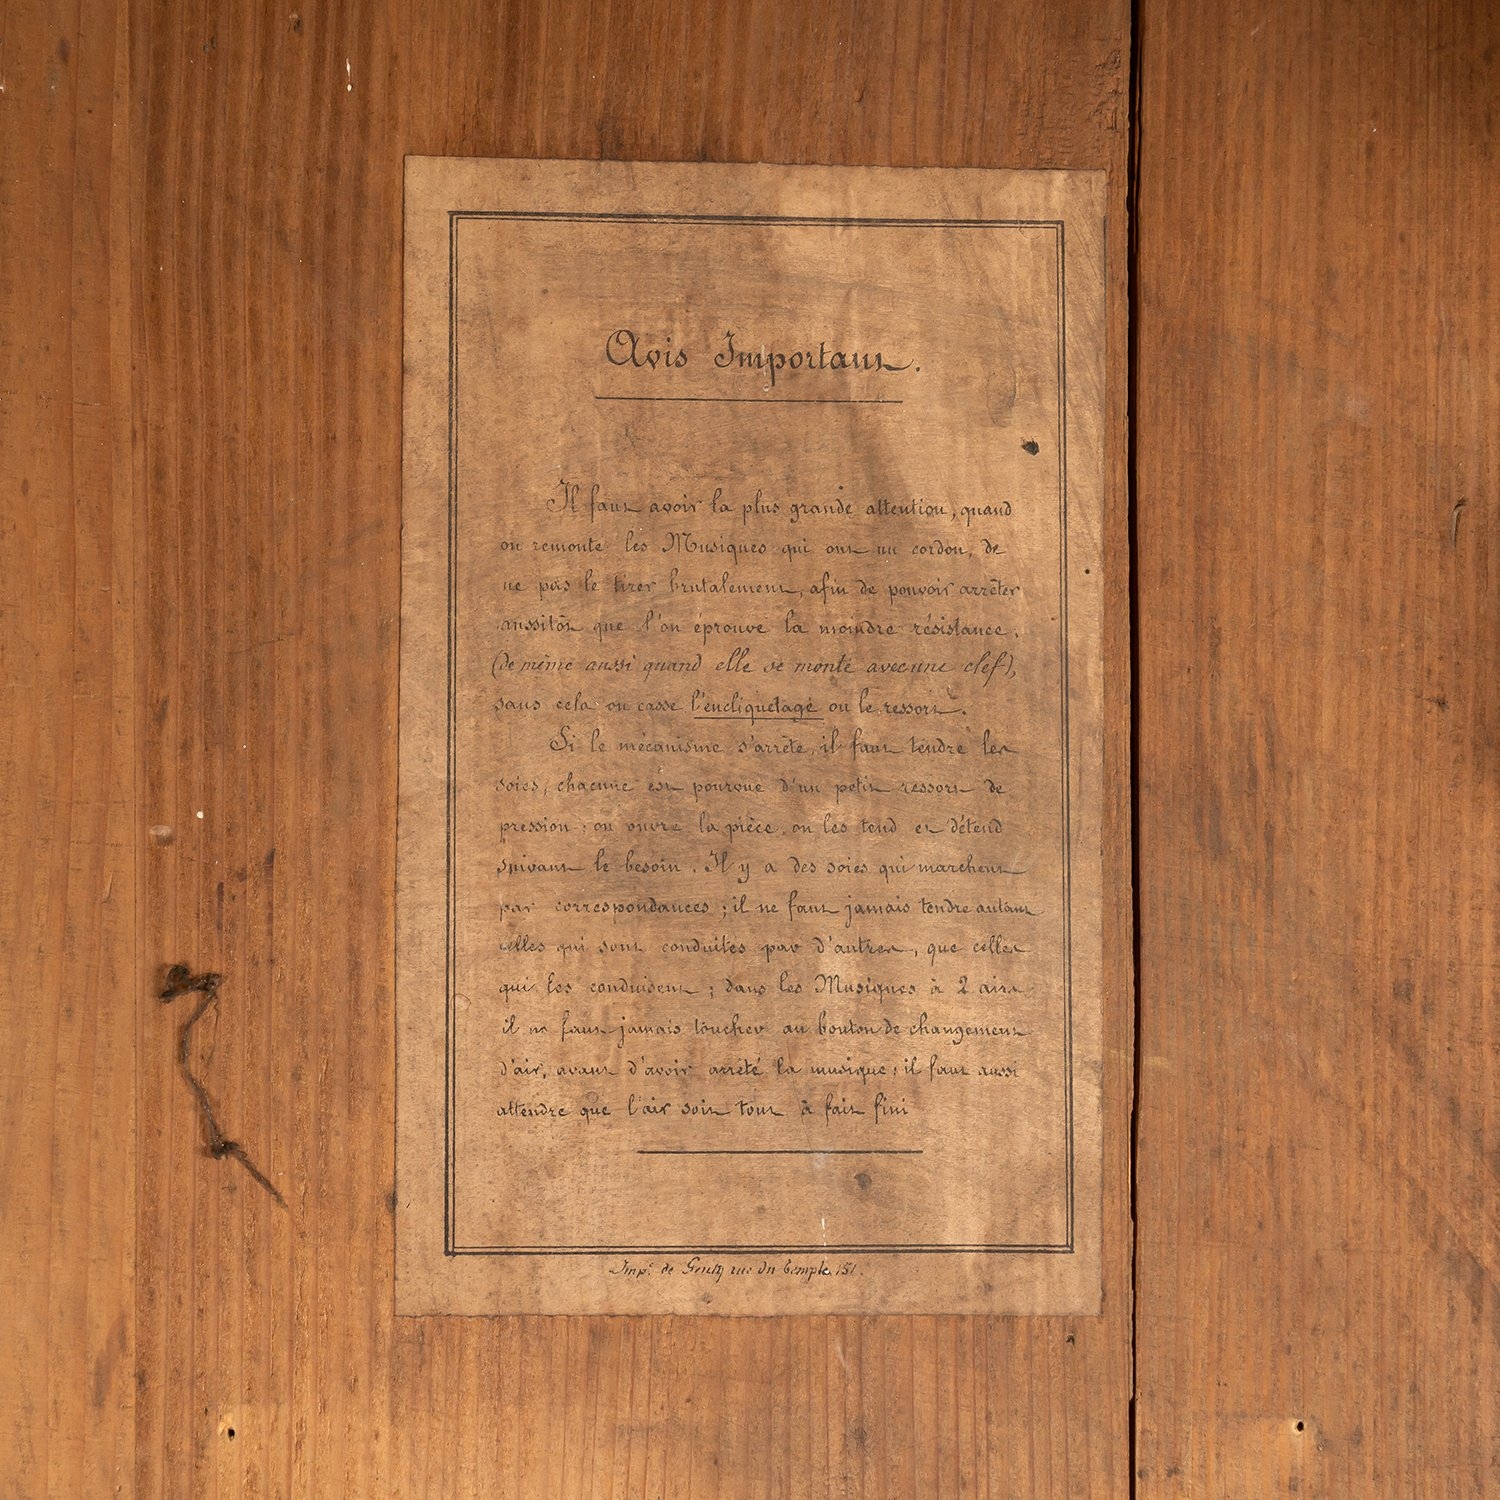 Avis Important.
Il faut avoir la plus grande attention, quand
on remonte les Musiques qui ont un cordon, de
ne pas le tirer brutalement, afin de pouvoir arrêter
aussitôt que l'on éprouve la moindre résistance;
(de même aussi quand elle se monte avec une clef),
sans cela on casse l'encliquetage ou le ressort.
Si le mécanisme s'arrête, il faut tendre les
soies, chacune est pourvue d'un petit ressort de
pression; on ouvre la pièce, on les tend et détend
suivant le besoin. Il y a des soies qui marchent
par correspondances; il ne faut jamais tendre autant
celles qui sont conduites par d'autres, que celles
qui les conduisent; dans les Musiques à 2 airs
il ne faut jamais toucher au bouton de changement
d'air, avant d'avoir arrêté la musique; il faut aussi
attendre que l'air soit tout à fait fini
Imp. de rue du Temple, 151.